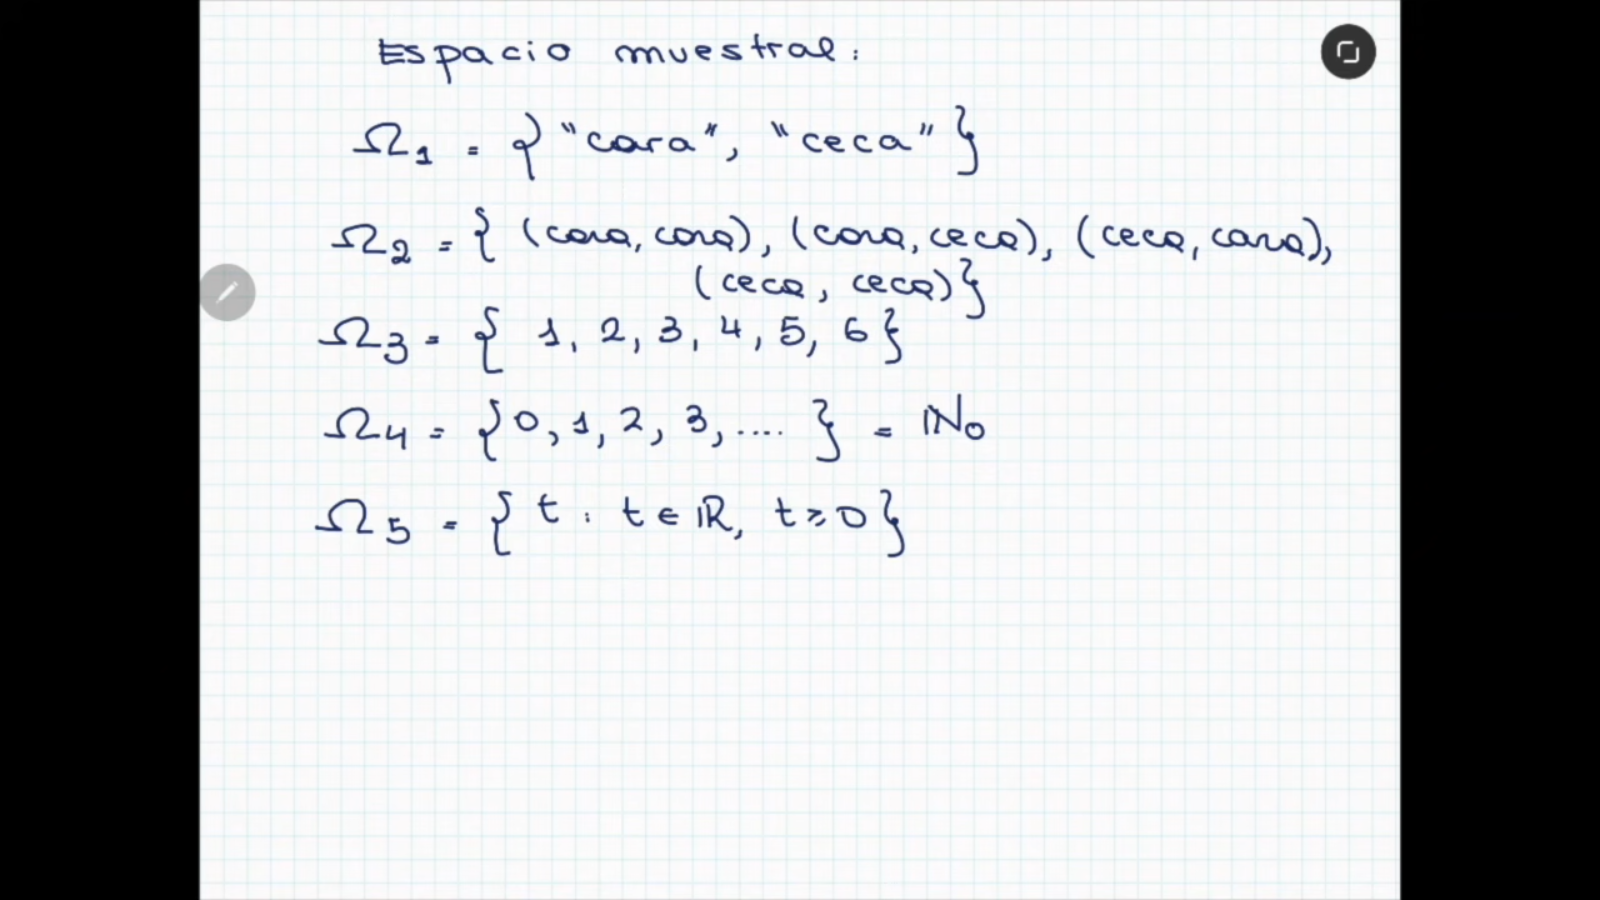 Espacio muestral:
Ω₁ = {"cara", "ceca"}
Ω₂ = { (cara, cara), (cara, ceca), (ceca, cara),
(ceca, ceca)}
Ω₃ = { 1, 2, 3, 4, 5, 6}
Ω₄ = {0, 1, 2, 3, .... } = ℕ₀
Ω₅ = { t : t ∈ ℝ, t ≥ 0}